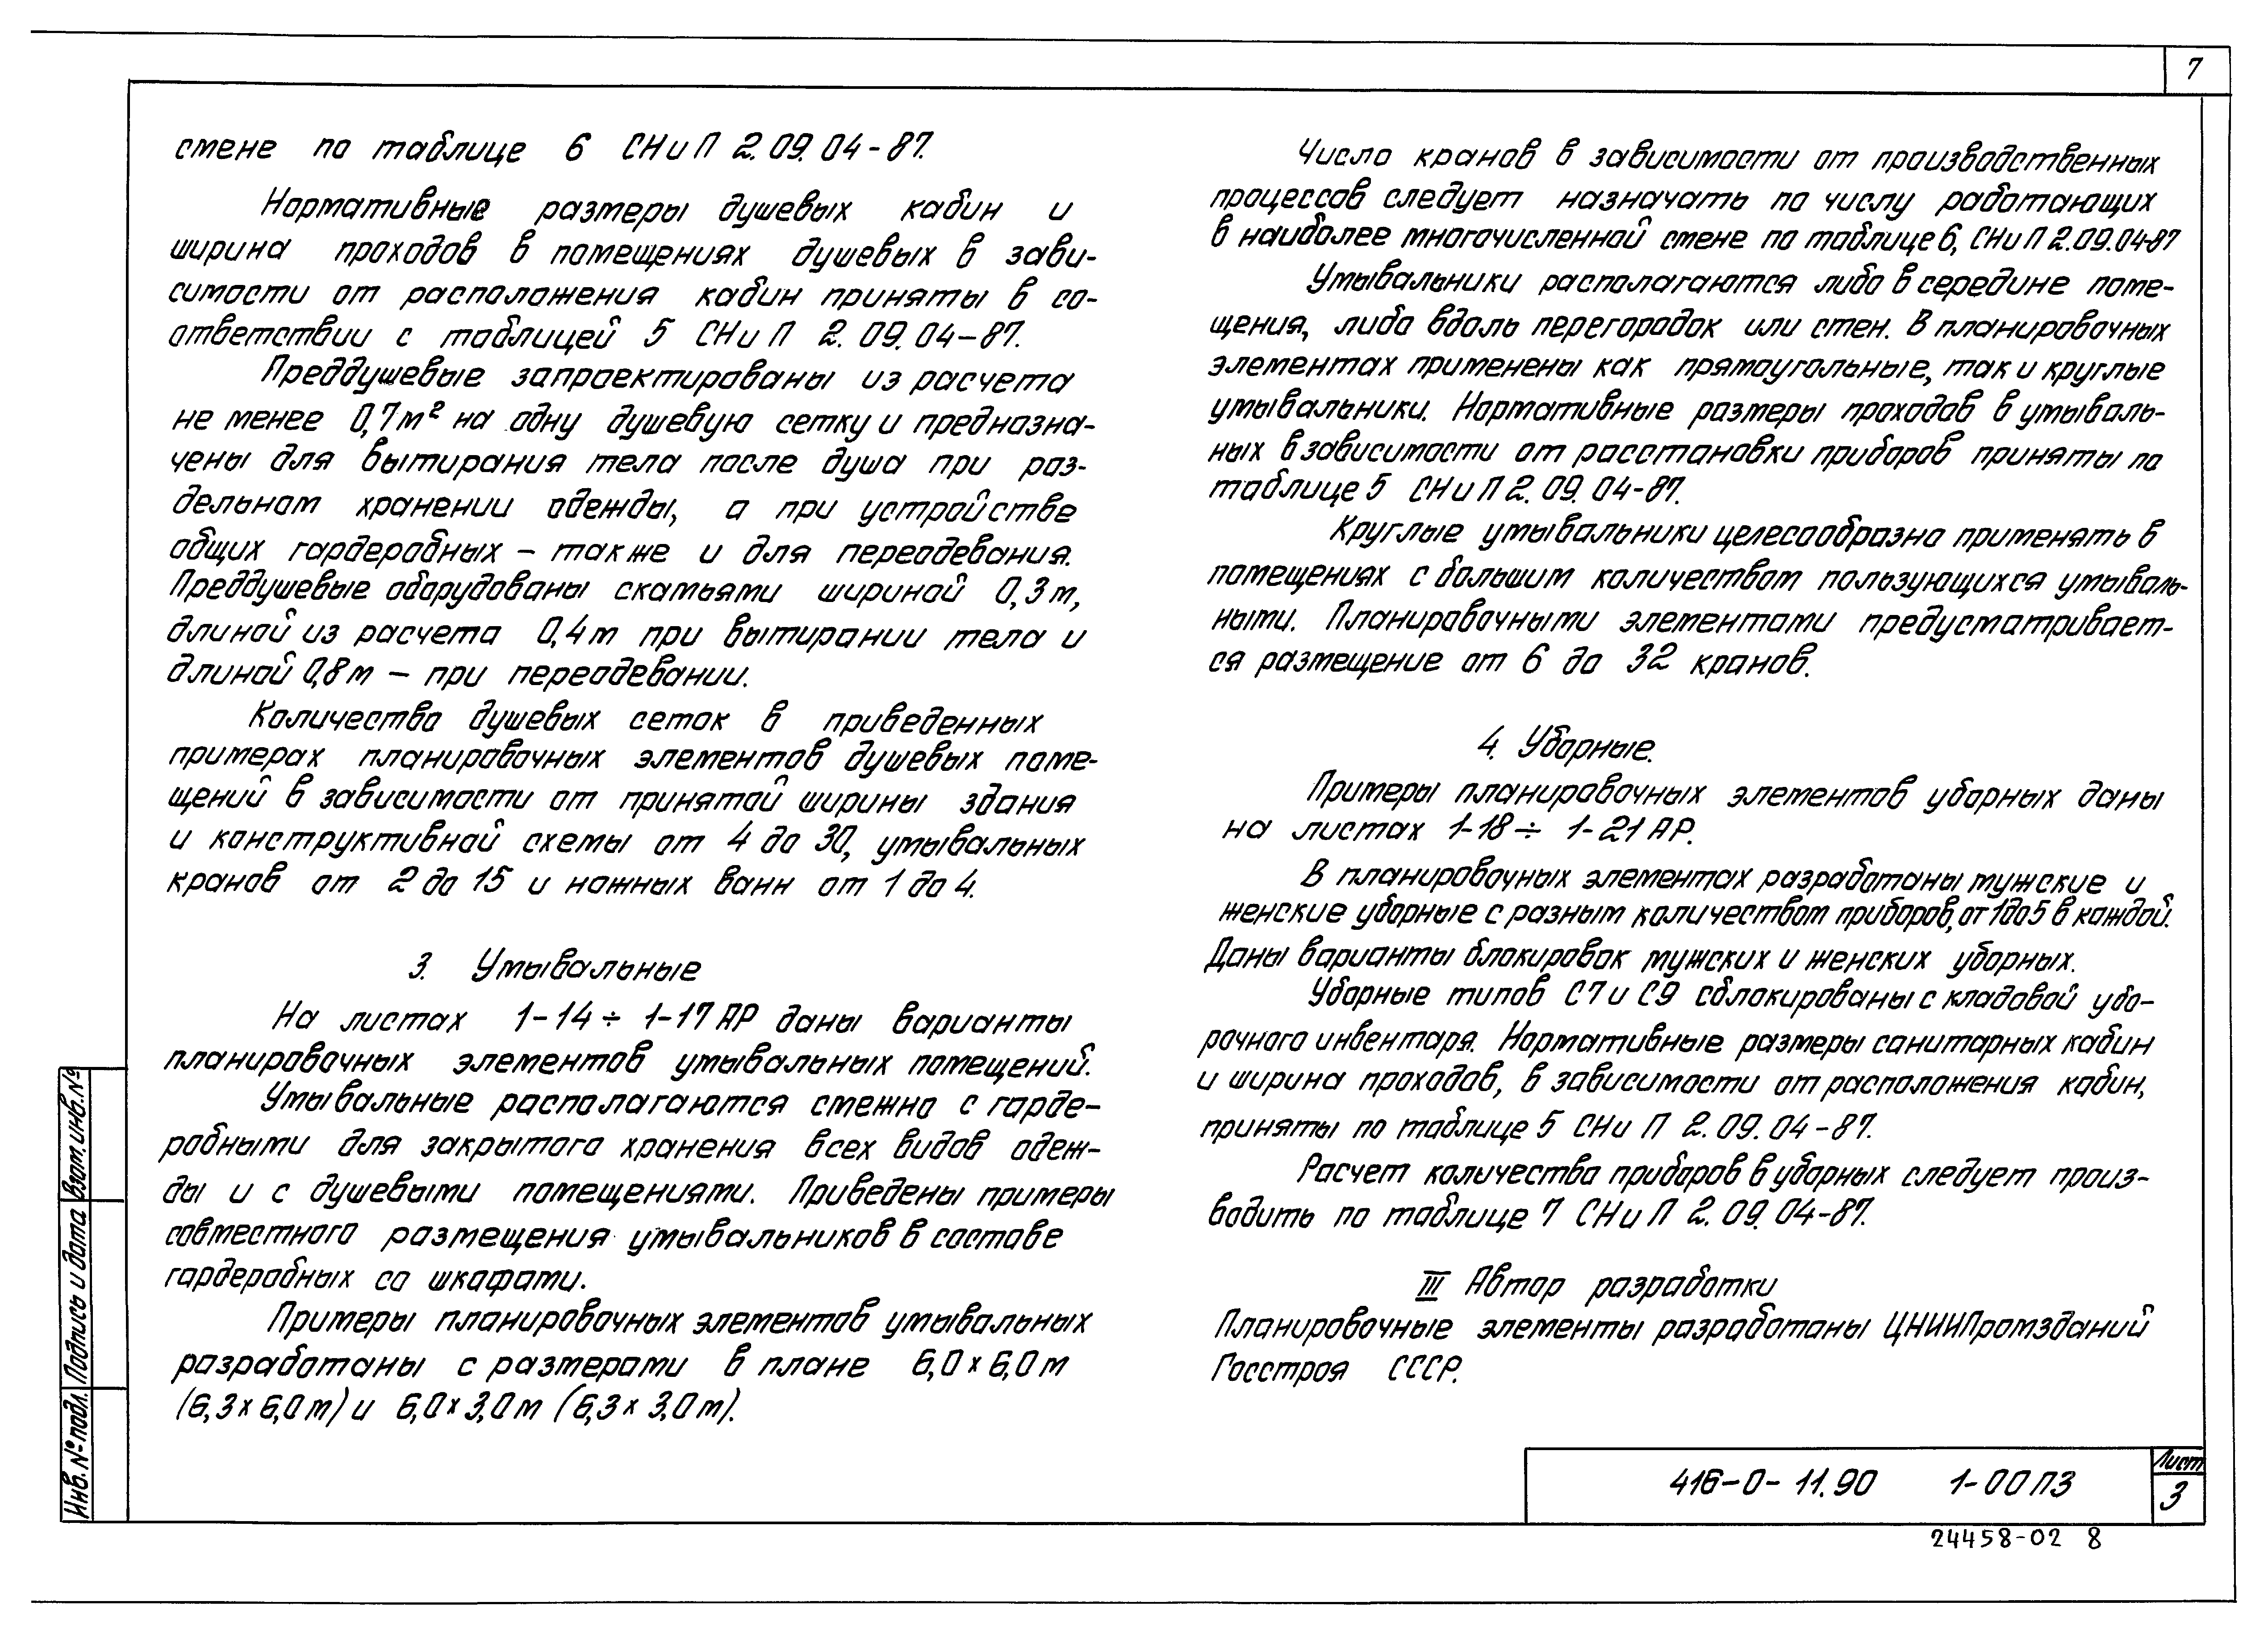 7
смене по таблице 6 СНиП 2.09.04-87.
Нормативные размеры душевых кабин и
ширина проходов в помещениях душевых в зави-
симости от расположения кабин приняты в со-
ответствии с таблицей 5 СНиП 2.09.04-87.
Преддушевые запроектированы из расчета
не менее 0,7м² на одну душевую сетку и предназна-
чены для вытирания тела после душа при раз-
дельном хранении одежды, а при устройстве
общих гардеробных – также и для переодевания.
Преддушевые оборудованы скамьями шириной 0,3м,
длиной из расчета 0,4м при вытирании тела и
длиной 0,8м – при переодевании.
Количество душевых сеток в приведенных
примерах планировочных элементов душевых поме-
щений в зависимости от принятой ширины здания
и конструктивной схемы от 4 до 30, умывальных
кранов от 2 до 15 и ножных ванн от 1 до 4.
3. Умывальные
На листах 1-14÷1-17АР даны варианты
планировочных элементов умывальных помещений.
Умывальные располагаются смежно с гарде-
робными для закрытого хранения всех видов одеж-
ды и с душевыми помещениями. Приведены примеры
совместного размещения умывальников в составе
гардеробных со шкафами.
Примеры планировочных элементов умывальных
разработаны с размерами в плане 6,0×6,0м
(6,3×6,0м) и 6,0×3,0м (6,3×3,0м).
Число кранов в зависимости от производственных
процессов следует назначать по числу работающих
в наиболее многочисленной смене по таблице 6, СНиП 2.09.04-87
Умывальники располагаются либо в середине поме-
щения, либо вдоль перегородок или стен. В планировочных
элементах применены как прямоугольные, так и круглые
умывальники. Нормативные размеры проходов в умываль-
ных в зависимости от расстановки приборов приняты по
таблице 5 СНиП 2.09.04-87.
Круглые умывальники целесообразно применять в
помещениях с большим количеством пользующихся умываль-
ными. Планировочными элементами предусматривает-
ся размещение от 6 до 32 кранов.
4. Уборные.
Примеры планировочных элементов уборных даны
на листах 1-18÷1-21АР.
В планировочных элементах разработаны мужские и
женские уборные с разным количеством приборов, от 1 до 5 в каждой.
Даны варианты блокировок мужских и женских уборных.
Уборные типов С7 и С9 сблокированы с кладовой убо-
рочного инвентаря. Нормативные размеры санитарных кабин
и ширина проходов, в зависимости от расположения кабин,
приняты по таблице 5 СНиП 2.09.04-87.
Расчет количества приборов в уборных следует произ-
водить по таблице 7 СНиП 2.09.04-87.
III Автор разработки
Планировочные элементы разработаны ЦНИИПромзданий
Госстроя СССР.
Инв. № подл.
Подпись и дата
Взам. инв. №
416-0-11.90 1-00ПЗ
Лист
3
24458-02 8